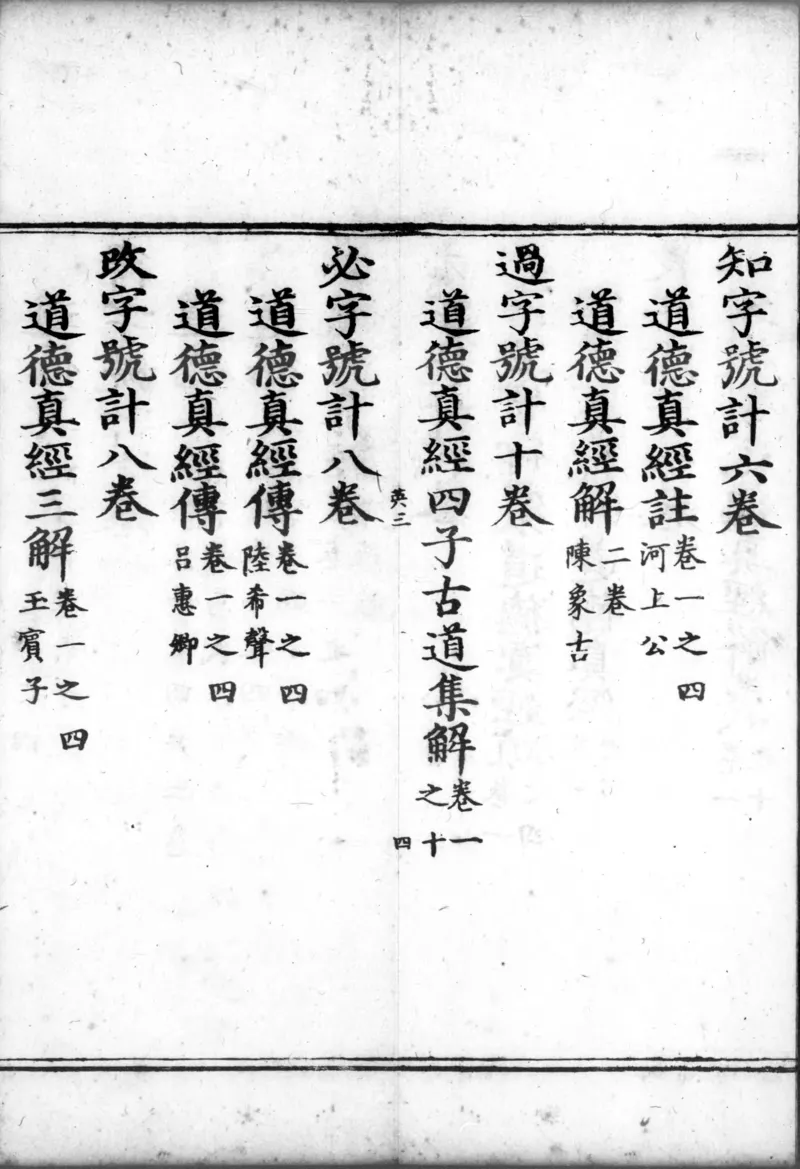 知字號計六卷
道德真經註卷一之四
河上公
道德真經解二卷
陳象古
過字號計十卷
道德真經四子古道集解卷一
之十
英三
四
必字號計八卷
道德真經傳卷一之四
陸希聲
道德真經傳卷一之四
呂惠卿
改字號計八卷
道德真經三解卷一之四
玉賓子